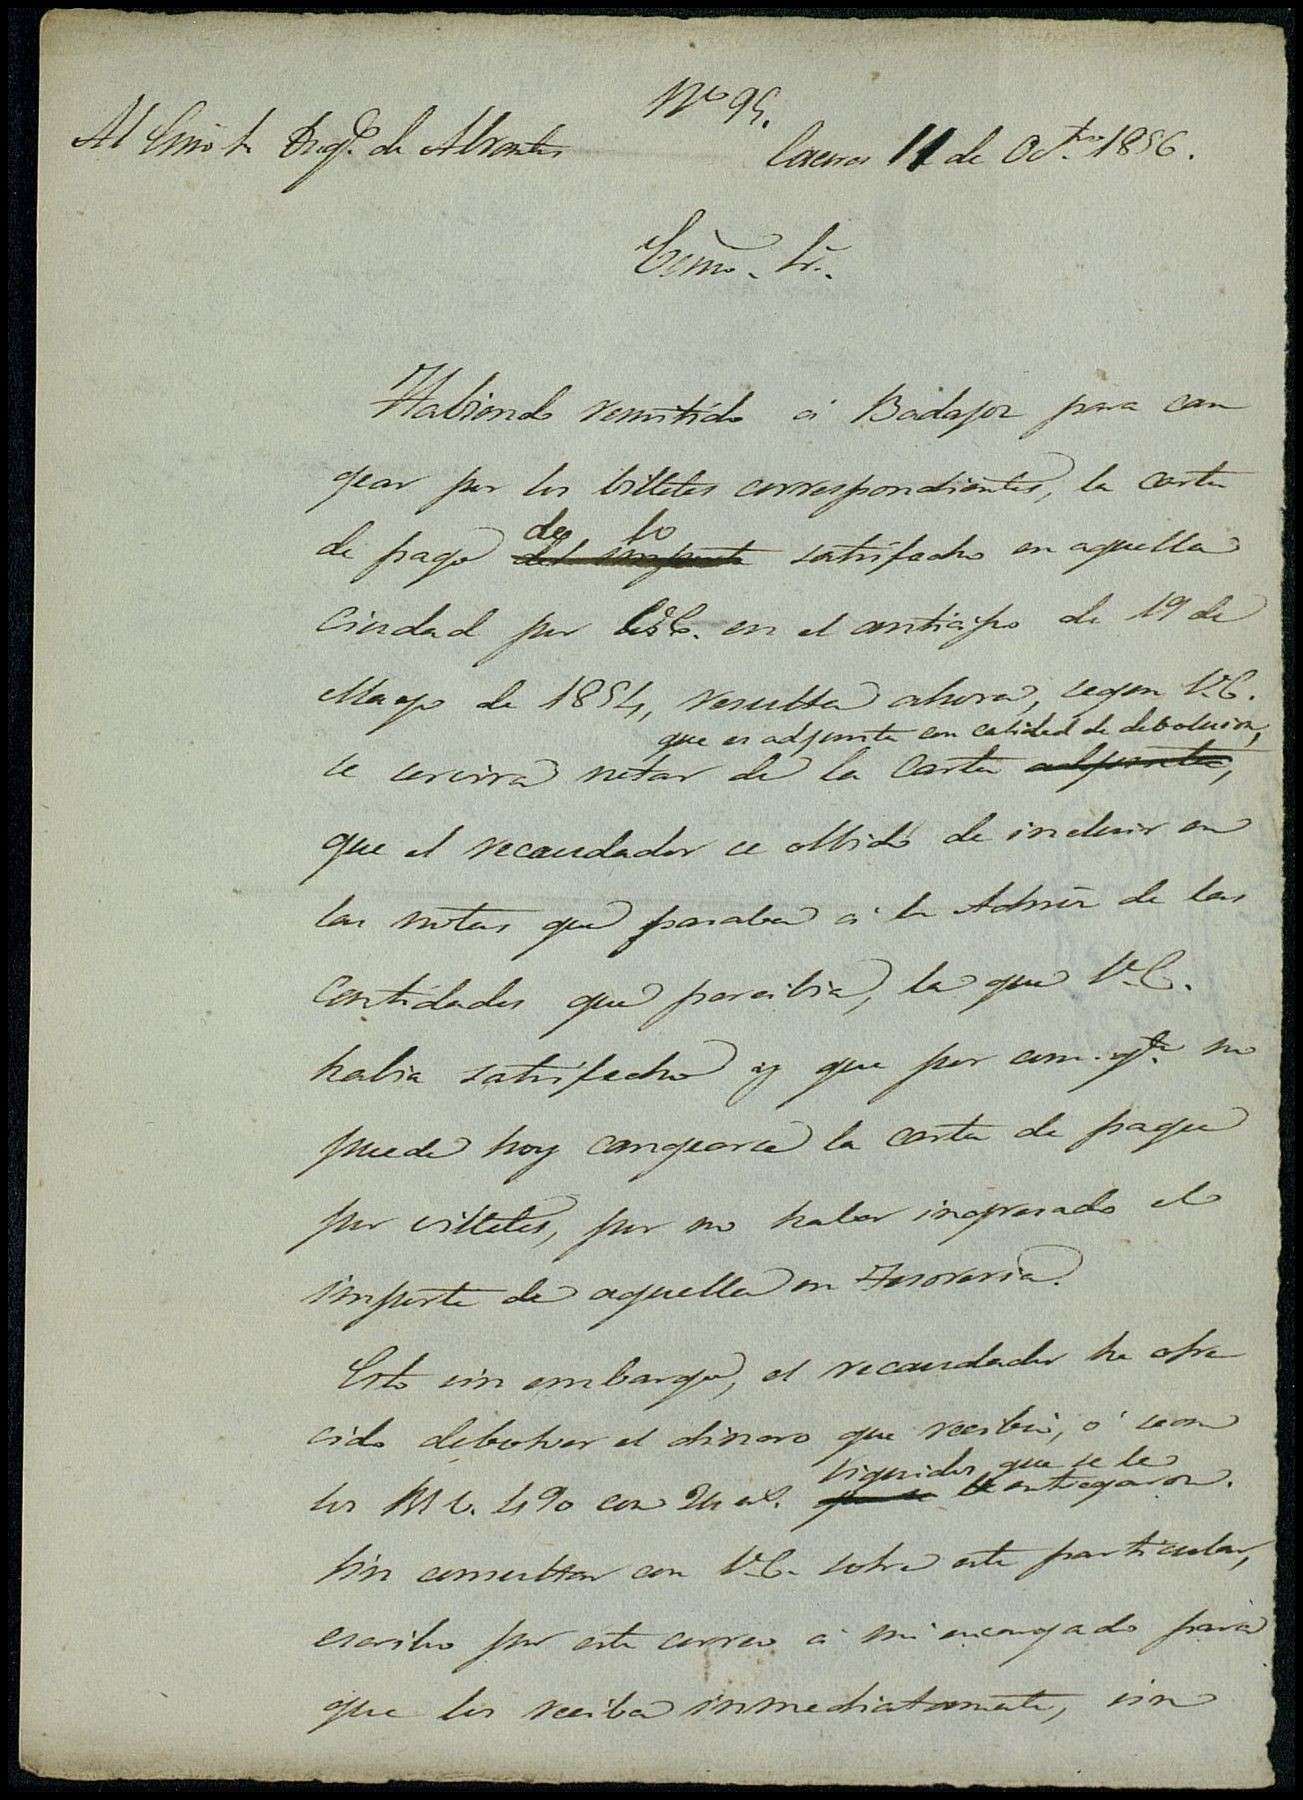 Nº 95.
Al Exmo Sr Duq.e de Abrantes
Caceres 11 de Oct.bre 1856.
Exmo. Sr.
Habiendo remitido á Badajoz para can
gear por los billetes correspondientes, la carta
de pago de lo satisfecho en aquella
ciudad por V.E. en el anticipo de 19 de
Mayo de 1854, resulta ahora, segun V.E.
que es adjunta con calidad de debolucion,
se servirá notar de la carta adjunta,
que el recaudador se olbidó de incluir en
las notas que pasaba á la Admón de las
cantidades que percibia, la que V.E.
habia satisfecho y que por con.sig.te no
puede hoy cangearse la carta de pago
por villetes, por no haber ingresado el
importe de aquella en Tesoreria.
Esto sin embargo, el recaudador ha ofre
cido debolver el dinero que recibió, ó sean
liquidos que se le
los Rs v. 490 con 24 entregaron.
Sin consultar con V.E. sobre este particular,
escribo por este correo á mi encargado para
que los reciba inmediatamente, sin